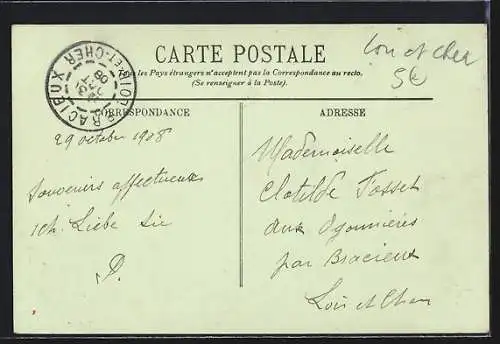 CARTE POSTALE
Tous les Pays étrangers n'acceptent pas la Correspondance au recto.
(Se renseigner à la Poste).
Loir et Cher
5€
BRACIEUX
LOIR-ET-CHER
08
CORRESPONDANCE
ADRESSE
29 october 1908
Souvenirs affectueux
ich Liebe Sie
P.
Mademoiselle
Clotilde Fosset
aux Ogonnières
par Bracieux
Loir et Cher